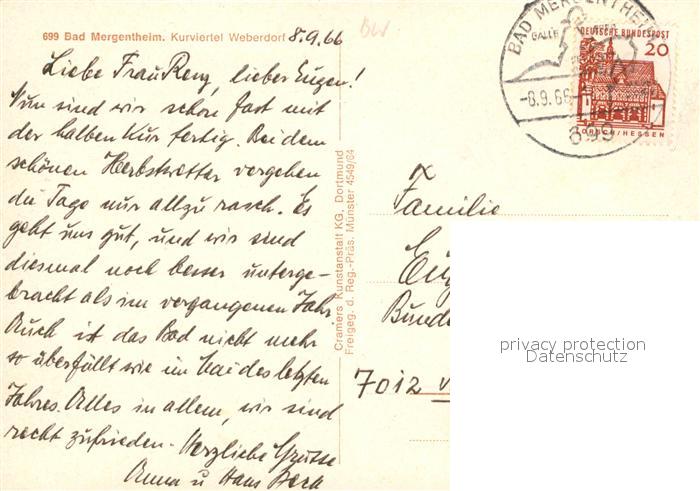 699 Bad Mergentheim. Kurviertel Weberdorf 8.9.66
BW
Liebe Frau Renz, lieber Eugen!
Nun sind wir schon fast mit
der halben Kur fertig. Bei dem
schönen Herbstwetter vergehen
die Tage nur allzu rasch. Es
geht uns gut, und wir sind
diesmal noch besser unterge-
bracht als im vergangenen Jahr.
Auch ist das Bad nicht mehr
so überfüllt wie im Mai des letzten
Jahres. Alles in allem, wir sind
recht zufrieden. Herzliche Grüsse
Anna u Hans
Cramers Kunstanstalt KG., Dortmund
Freigeg. d. Reg.-Präs. Münster 4549/64
BAD MERGENTHEIM
GALLE
-8.9.66
699
DEUTSCHE BUNDESPOST
20
LORSCH/HESSEN
Familie
Eug
Bunde
7012
privacy protection
Datenschutz